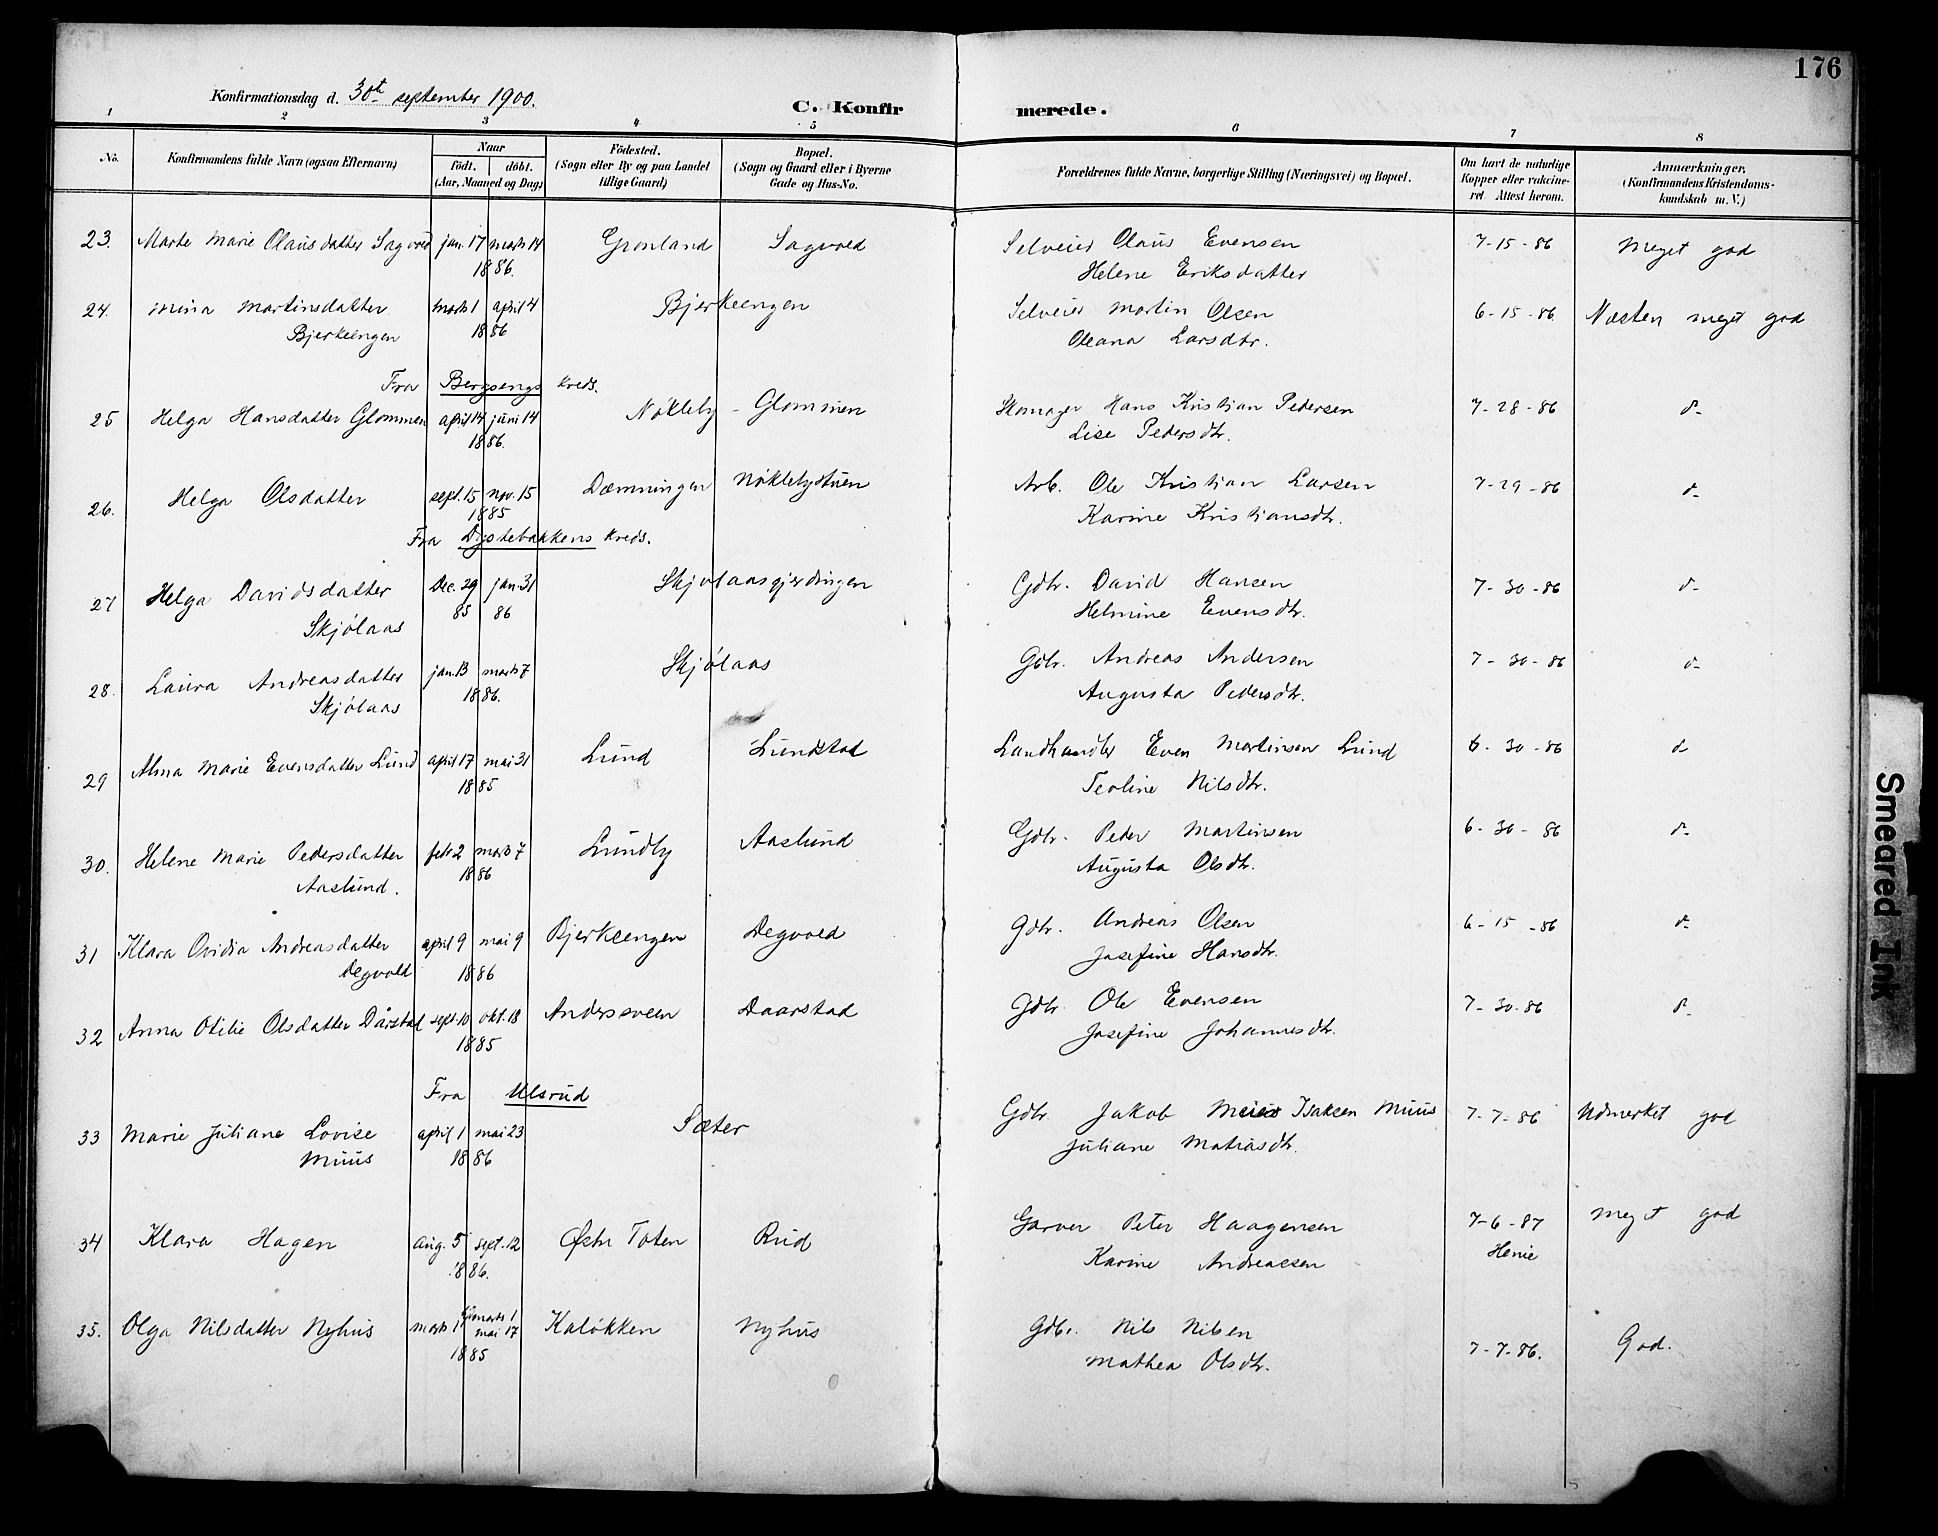 176
Konfirmationsdag d. 30te september 1900.
C. Konfirmerede.
1 2 3 4 5 6 7 8
No. Konfirmandens fulde Navn (ogsaa Efternavn) Naar født. døbt. (Aar, Maaned og Dag) Fødested. (Sogn eller By og paa Landet tillige Gaard) Bopæl. (Sogn og Gaard eller i Byerne Gade og Hus-No. Forældrenes fulde Navne, borgerlige Stilling (Næringsvei) og Bopæl. Om havt de naturlige Kopper eller vaccineret Attest herom. Anmærkninger. (Konfirmandens Kristendomskundskab m. V.)
23. Marte Marie Olausdatter Sagvold jan. 17 marts 14 Grønland Sagvold Selveier Olaus Evensen 7-15-86 Meget god
1886. Helene Eriksdatter
24. Mina Martinsdatter marts 1 april 4 Bjerkeengen Selveier Martin Olsen 6-15-86 Næsten meget god
Bjerkeengen 1886 Oleana Larsdtr.
Fra Bergsengs kreds.
25 Helga Hansdatter Glommen april 14 juni 14 Nøkleby - Glommen Skomager Hans Kristjan Pedersen 7-28-86 d-
1886. Lise Pedersdtr.
26. Helga Olsdatter sept. 15 nov. 15 Dæmningen Nøklebystuen Arb. Ole Kristjan Larsen 7-29-86 d-
1885 Karine Kristjansdtr.
Fra Dystebakkens kreds.
27 Helga Davidsdatter Dec. 29 jan. 31 Skjølaasgjerdingen Gdbr. David Hansen 7-30-86 d-
Skjølaas 85 86 Helmine Evensdtr.
28. Laura Andreasdatter jan. 13 marts 7 Skjølaas Gdbr. Andreas Andersen 7-30-86 d-
Skjølaas 1886. Augusta Pedersdtr.
29 Alma Marie Evensdatter Lund april 17 mai 31 Lund Lundstad Landhandler Even Martinsen Lund 6-30-86 d
1885 Teoline Nilsdtr.
30. Helene Marie Pedersdatter febr 2 marts 7 Lundby Aaslund Gdbr. Peder Martinsen 6-30-86 d-
Aaslund. 1886 Augusta Olsdtr.
31 Klara Ovidia Andreasdatter april 9 mai 9 Bjerkeengen Degvold Gdbr. Andreas Olsen 6-15-86 d-
Degvold 1886 Josefine Hansdtr.
32 Anna Otilie Olsdatter Dårstad sept. 10 okt. 18 Anderssveen Daarstad Gdbr. Ole Evensen 7-30-86 d-
1885 Josefine Johannesdtr.
Fra Ulsrud
33 Marie Juliane Lovise april 1 mai 23 Sæter Gdbr. Jakob Isaksen Muus 7-7-86 Udmerket god
Muus 1886 Juliane Matiasdtr.
34 Klara Hagen aug. 5 sept. 12 Østre Toten Rud Garver Peter Haagensen 7-6-87 Meget god
1886. Karine Andreassen Henie
35. Olga Nilsdatter Nyhus marts 1 marts 1 Kaløkken Nyhus Gdbr. Nils Nilsen 7-7-86. God.
mai 17
1885 Mathea Olsdtr.
Smeared Ink